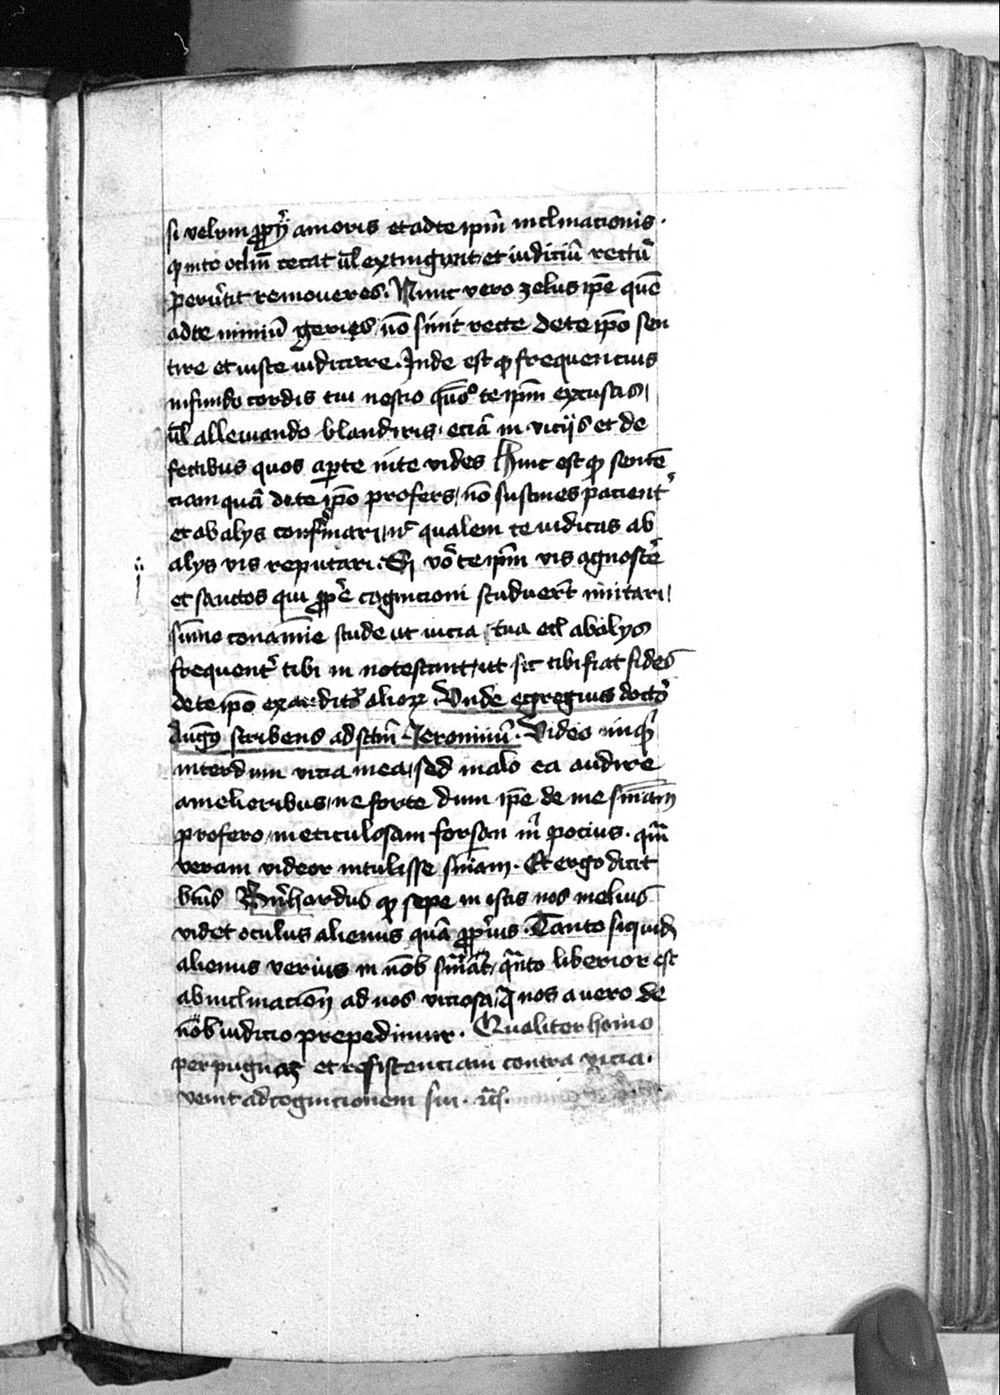 si velum ꝓpꝰij amoris et ad te ip̄m inclinacionis ·
q̄ intᵒ oclm̄ cecat ul̄ extingwit et iudiciū rectū
ꝑuertit remoueres. Nunc vero zelus ip̄e quē
ad te nimiū geris / nō sinit recte de te ip̄o sen
tire et iuste iudicare. Inde est ꝙ frequencius
in fundo cordis tui nescio quōᵒ te ip̄m excusas /
ul̄ alleuiando blandiris / eciā in vicijs et de
fectibus quos aꝑte in te vides Hinc est ꝙ senten̄
ciam quā de te ip̄o profers / nō sustines pacient̄
et ab alijs confirmari / nᶜ qualem te iudicas ab
alys vis reputari. Si vō te ip̄m vis agnoscē
et sanctos qui ꝓpē cognicioni studuer̄t imitari /
sūmo conamīe stude ut vicia tua ecī ab alys
frequent̄ tibi in notescant / ut sic tibi fiat fides
de te ip̄o ex auditꝰ alioꝝ Vnde egregius doctō
Augꝰ scribens ad sctm̄ Ieronimū. Video inqͥ
interdum vicia mea / sed malo ea audire
a melioribus / ne forte dum ip̄e de me sn̄iam
profero / meticulosam forsan m̄ pocius · qm̄
veram videor intulisse sn̄iam. Et ergo dicit
btūs Bern̄hardus ꝙ sepe in istis nos melius
videt oculus alienus quā ꝓpꝰius. Tanto siquid̄
alienus verius in nōb / qn̄to liberior est
ab inclinacion̄ ad nos viciosa / q̄ nos a vero de
nōb iudicio prepedimur. Qualiter homo
per pugnaꝫ et resistenciam contra vicia.
venit ad cognicionem sui.